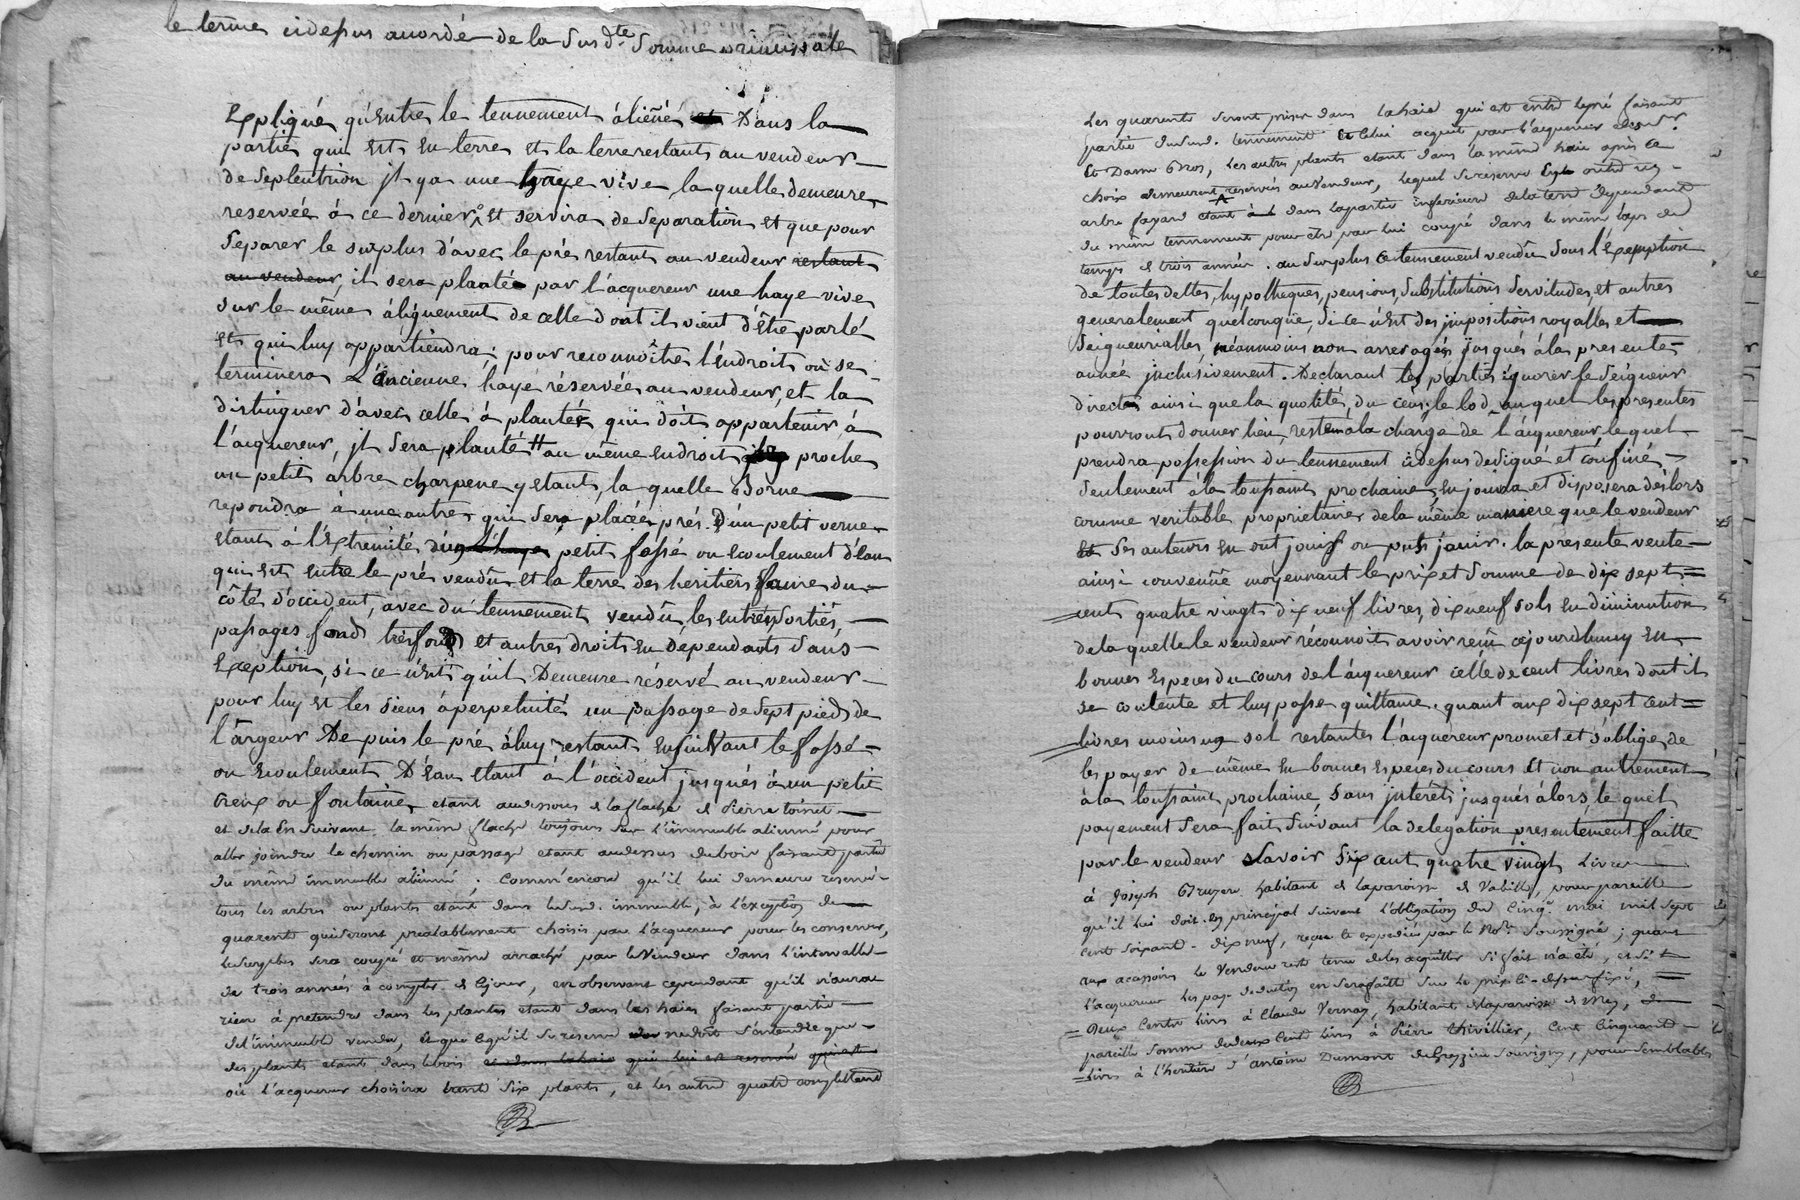 le terme cidessus accordé de la susd.te somme principale
Expliqué qu'entre le tennement âlieñé Dans la
partie qui est en terre et la terre restant au vendeur
de Septentrion jl y a une haye vive, la quelle demeure
reservée à ce dernier, et servira de separation et que pour
separer le surplus d'avec le pré restant au vendeur restant
au vendeur, il sera plantée par l'acquereur une haye vive
sur le même âlignement de celle dont il vient d'être parlé
et qui luy appartiendra; pour reconnoître l'endroit où se
terminera L'äncienne haye réservée au vendeur, et la
distinguer d'avec celle à planter qui dôit appartenir à
l'acquereur, jl sera planté # au même endroit proche
un petit arbre charpene y etant, la quelle Borne
repondra à une autre qui sera placée prés D'un petit verne
etant à l'extremité d'un petit fossé ou ecoulement d'eau
qui est entre le pré vendû et la terre des heritiers faure du
côté d'occident, avec du tennement vendû, les entrées sorties,
passages fond tresfond et autres droits en dépendants sans
exception, si ce n'est qu'il Demeure réservé au vendeur
pour luy et les siens à perpetuité un passage de sept pieds de
l'argeur Depuis le pré à luy restant Ensuivant le fossé
ou ecoulement D'eau etant à l'occident jusqués à un petit
creux ou fontaine, etant audessous de la flache de Pierre toinet
et dela En suivant la même flache toujours sur l'immeuble alienné pour
aller joindre le chemin ou passage etant audessus du bois faisant partie
du même immeuble alienné; Comm'encore qu'il lui demeure reservé
tous les arbres ou plants etant dans led. immeuble, à l'exception de
quarente qui seront prealablement choisis par l'acquereur pour les conserver,
le surplus sera coupé et même arraché par le Vendeur dans l'intervalle
de trois années à compter de ce jour, en observant cependant qu'il n'aura
rien à pretendre dans les plantes etant dans les haies faisant partie
del'immeuble vendu, et que ce qu'il se reserve ne doit s'entendre que
des plants etant dans le bois et dans la haie qui lui est reservée
où l'acquereur choisira trente six plants, et les autres quatre completant
Les quarente seront prises dans la haie qui est entre le pré faisant
partie dud. tennement et celui acquis par l'aquereur des Sr.
et Dame Gros, les autres plants etant dans la même haie après ce
choix demeurent reservés au Vendeur, lequel se reserve outre un
arbre fayard dans la partie inferieure de la terre dependant
du même tennement pour être par lui coupé dans le même laps de
temps de trois années. au surplus ce tennement vendu sous l'Exemption
de toutes dettes, hypotheques, pensions, substitutions servitudes, et autres
generalement quelconque, si ce n'est des jmpositions royalles et
Seigneurialles, néanmoins non arreragés jusqués à la presente
année jnclusivement. Declarant les parties ignorer le Seigneur
direct ainsi que la quotité, du cens, le lod, auquel les presentes
pourront donner lieu, restera à la charge de l'acquereur, le quel
prendra possession du tennement cidessus designé et confiné,
seulement à la toussaint prochaine, en jouira et disposera dès lors
comme veritable proprietaire de la même maniere que le vendeur
et ses auteurs en ont joui ou pu jouir. la presente vente
ainsi convenüe moyennant le prix et somme de dix sept
cent quatre vingt dix neuf livres, dix neuf sols en diminution
de la quelle le vendeur réconnoit avoir reçu ce jourdhuuy en
bonnes especes du cours de l'acquereur celle de cent livres dont il
se contente et luy passe quittance. quant aux dix sept cent
livres moins un sol restantes l'acquereur promet et s'oblige de
les payer de même en bonnes especes du cours et non autrement
à la toussaint prochaine, sans interêts jusqués alors, le quel
payement sera fait suivant la delegation presentement faitte
par le vendeur Savoir Six cent quatre vingt Livres
à Joseph habitant de la paroisse de Valeille, pour pareille
qu'il lui doit en principal suivant l'obligation du cinq.e mai mil sept
cent soixante-dix neuf, reçue et expediée par le No.re soussigné; quant
aux acessoires le Vendeur reste tenu de les acquitter si fait n'a été, et si
l'acquereur les paye deduction en sera faitte sur le prix ci-dessus fixé;
Deux Cents livres à Claude Vernay, habitant de la paroisse de
pareille somme de deux Cent livres à Pierre Thivillier, Cent Cinquante
Livres à l'heritier d'antoine Dumont de Grezieu Souvigny, pour semblable